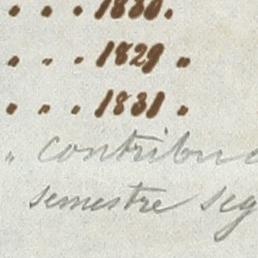 . . . 1830.
. . . 1829 "
. . . 1831 .
" contribuc
semestre seg